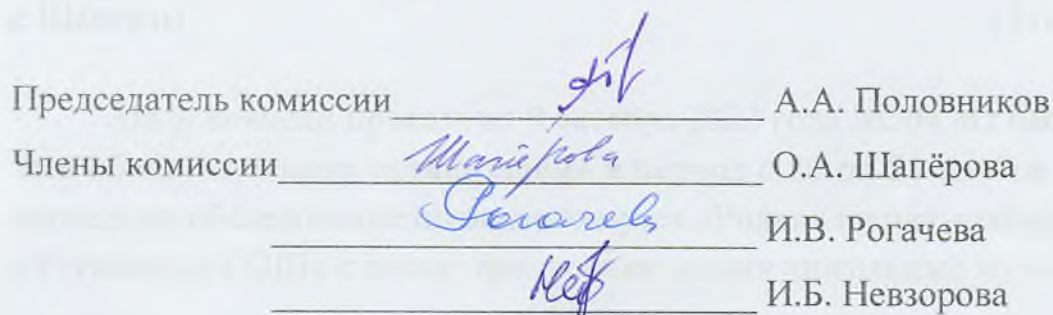 Председатель комиссии А.А. Половников
Члены комиссии Шапёрова О.А. Шапёрова
И.В. Рогачева
И.Б. Невзорова